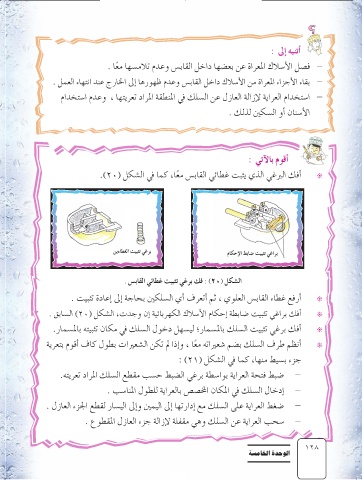 أنتبه إلى :
– فصل الأسلاك المعراة عن بعضها داخل القابس وعدم تلامسها معًا .
– بقاء الأجزاء المعراة من الأسلاك داخل القابس وعدم ظهورها إلى الخارج عند انتهاء العمل .
– استخدام العراية لإزالة العازل عن السلك في المنطقة المراد تعريتها ، وعدم استخدام
الأسنان أو السكين لذلك .
أقوم بالآتي :
* أفك البرغي الذي يثبت غطائي القابس معًا، كما في الشكل (٢٠).
براغي تثبيت ضابط الإحكام
برغي تثبيت الغطاءين
الشكل (٢٠) : فك برغي تثبيت غطائي القابس .
* أرفع غطاء القابس العلوي ، ثم أتعرف أي السلكين بحاجة إلى إعادة تثبيت .
* أفك براغي تثبيت ضابطة إحكام الأسلاك الكهربائية إن وجدت، الشكل (٢٠) السابق .
* أفك برغي تثبيت السلك بالمسمار؛ ليسهل دخول السلك في مكان تثبيته بالمسمار.
* أنظم طرف السلك بضم شعيراته معًا ، وإذا لم تكن الشعيرات بطول كاف أقوم بتعرية
جزء بسيط منها، كما في الشكل (٢١) :
– ضبط فتحة العراية بواسطة برغي الضبط حسب مقطع السلك المراد تعريته.
– إدخال السلك في المكان المخصص بالعراية للطول المناسب .
– ضغط العراية على السلك مع إدارتها إلى اليمين وإلى اليسار لقطع الجزء العازل .
– سحب العراية عن السلك وهي مقفلة لإزالة جزء العازل المقطوع .
١٢٨
الوحدة الخامسة